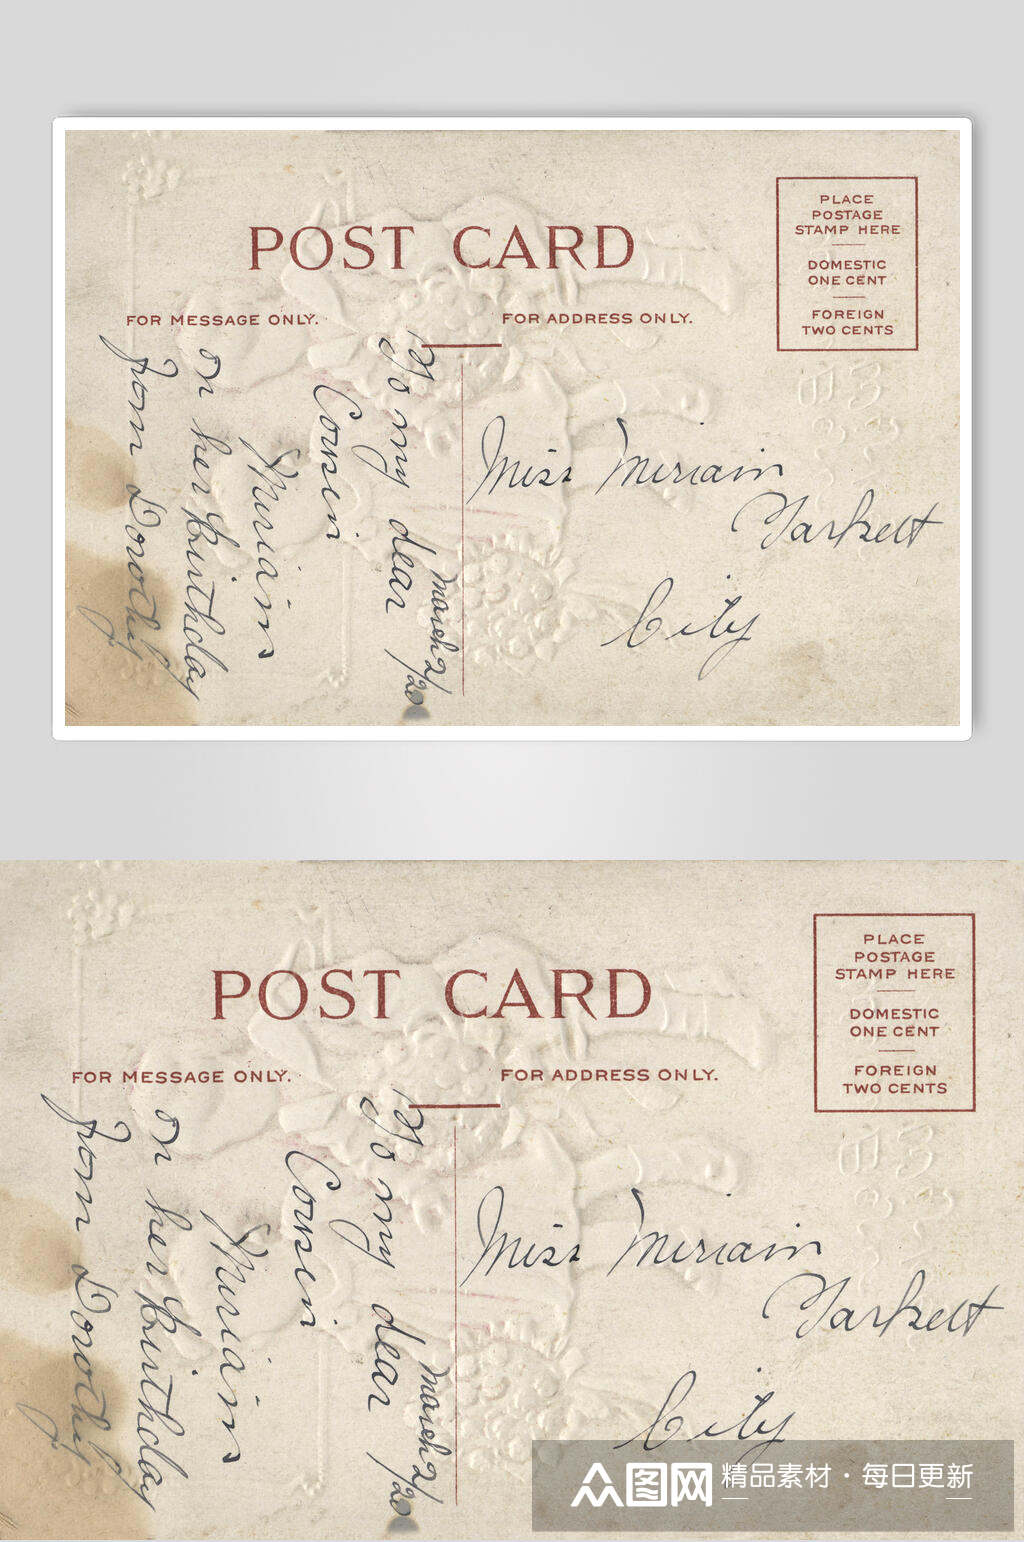 POST CARD
PLACE
POSTAGE
STAMP HERE
DOMESTIC
ONE CENT
FOREIGN
TWO CENTS
FOR MESSAGE ONLY.
FOR ADDRESS ONLY.
March 2/20
To my dear
Cousin
Miriam
on her Birthday
from Dorothy
Miss Miriam
Tarkett
City
POST CARD
PLACE
POSTAGE
STAMP HERE
DOMESTIC
ONE CENT
FOREIGN
TWO CENTS
FOR MESSAGE ONLY.
FOR ADDRESS ONLY.
March 2/20
To my dear
Cousin
Miriam
on her Birthday
from Dorothy
Miss Miriam
Tarkett
City
众图网
精品素材·每日更新